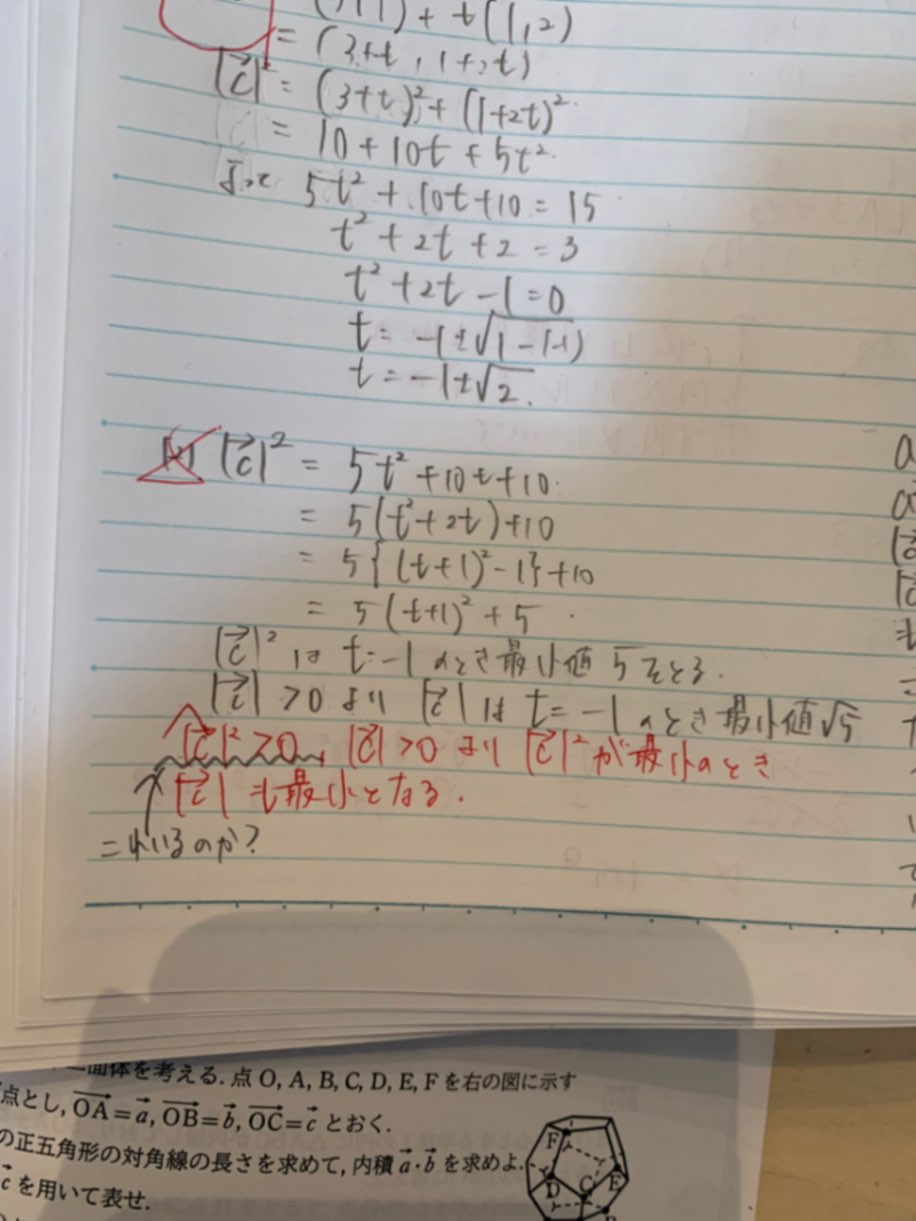 + t(1,2)
= (3+t, 1+2t)
|c⃗|² = (3+t)² + (1+2t)²
= 10 + 10t + 5t²
よって 5t² + 10t + 10 = 15
t² + 2t + 2 = 3
t² + 2t - 1 = 0
t = -1±√1-(-1)
t = -1±√2.
|c⃗|² = 5t² + 10t + 10.
= 5(t² + 2t) + 10
= 5{(t+1)² - 1} + 10
= 5(t+1)² + 5.
|c⃗|² は t=-1 のとき最小値 5 をとる.
|c⃗| > 0 より |c⃗| は t = -1 のとき最小値√5
|c⃗|² > 0, |c⃗| > 0 より |c⃗|² が最小のとき
|c⃗| も最小となる.
これいるのか?
面体を考える. 点 O, A, B, C, D, E, F を右の図に示す
点とし, OA⃗ = a⃗, OB⃗ = b⃗, OC⃗ = c⃗ とおく.
の正五角形の対角線の長さを求めて, 内積 a⃗・b⃗ を求めよ.
c⃗ を用いて表せ.
F
D
C
E